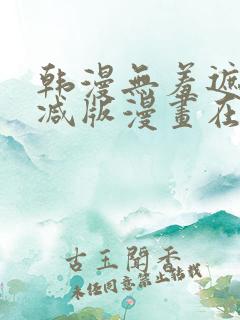 韩漫無羞遮
减版漫畫在
古玉聞香
未经同意禁止转载